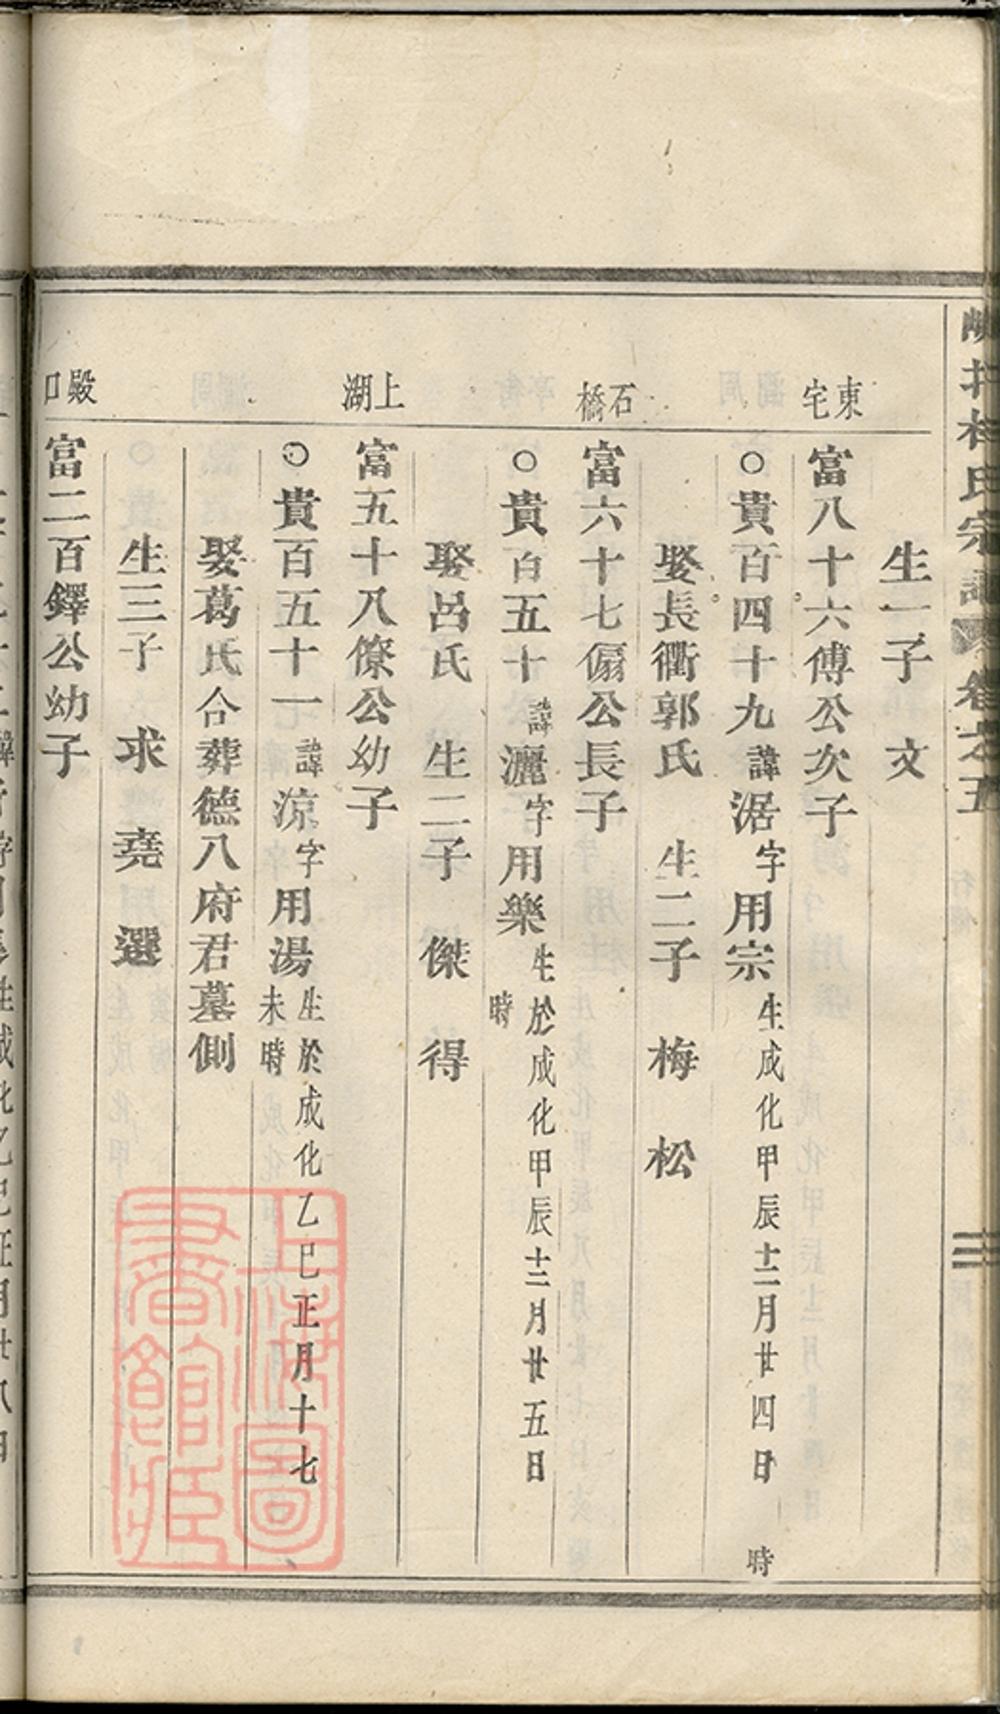 氏宗譜 卷之五
生一子 文
東宅
富八十六傅公次子
○貴百四十九諱涺字用宗生成化甲辰十二月廿四日 時
娶長衢郭氏 生二子 梅 松
石橋
富六十七傓公長子
○貴百五十諱灑字用樂生於成化甲辰十二月廿五日時
娶呂氏 生二子 傑 得
上湖
富五十八僚公幼子
○貴百五十一諱涼字用湯生於成化乙巳正月十七未時
娶葛氏合葬德八府君墓側
生三子 求 堯 選
殿口
富二百鐸公幼子
上海圖書館藏